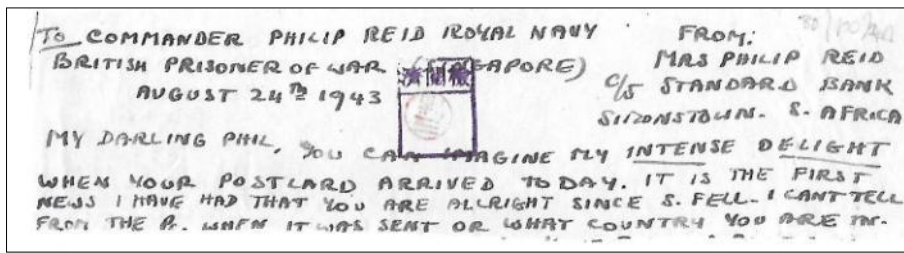 To COMMANDER PHILIP REID ROYAL NAVY
BRITISH PRISONER OF WAR (SINGAPORE)
AUGUST 24TH 1943
濟閲檢
FROM:
MRS PHILIP REID
C/S STANDARD BANK
SIMONSTOWN. S. AFRICA
MY DARLING PHIL, YOU CAN IMAGINE MY INTENSE DELIGHT
WHEN YOUR POSTCARD ARRIVED TODAY. IT IS THE FIRST
NEWS I HAVE HAD THAT YOU ARE ALLRIGHT SINCE S. FELL. I CANT TELL
FROM THE PC. WHEN IT WAS SENT OR WHAT COUNTRY YOU ARE IN.